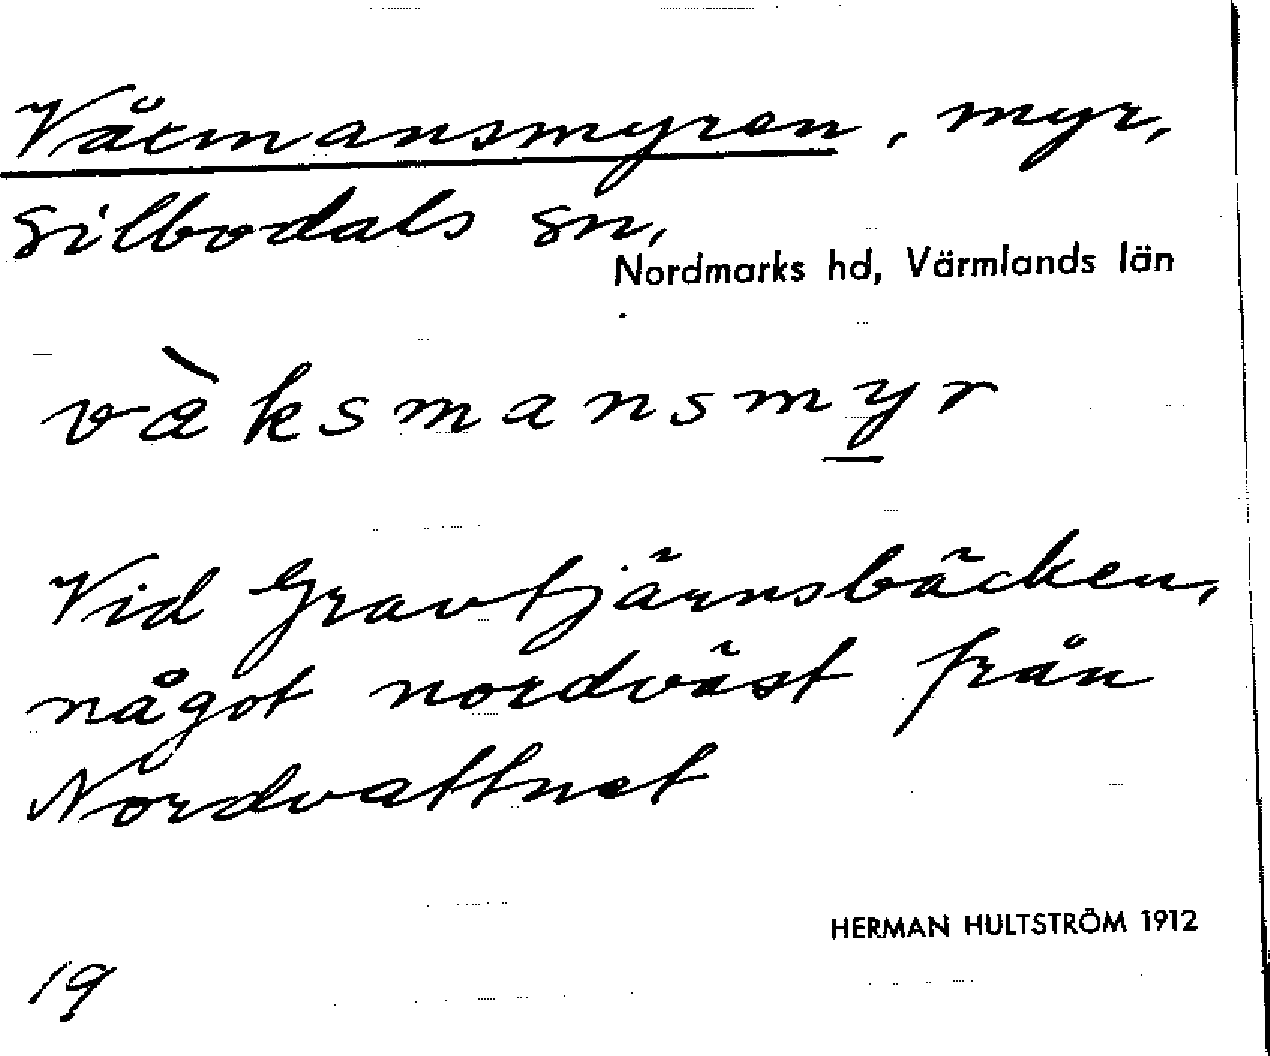 Växmansmyren, myr,
Silbodals sn,
Nordmarks hd, Värmlands län
væ̀ksmansmyr
Vid Gravtjärnsbäcken,
något nordväst från
Nordvattnet
HERMAN HULTSTRÖM 1912
19